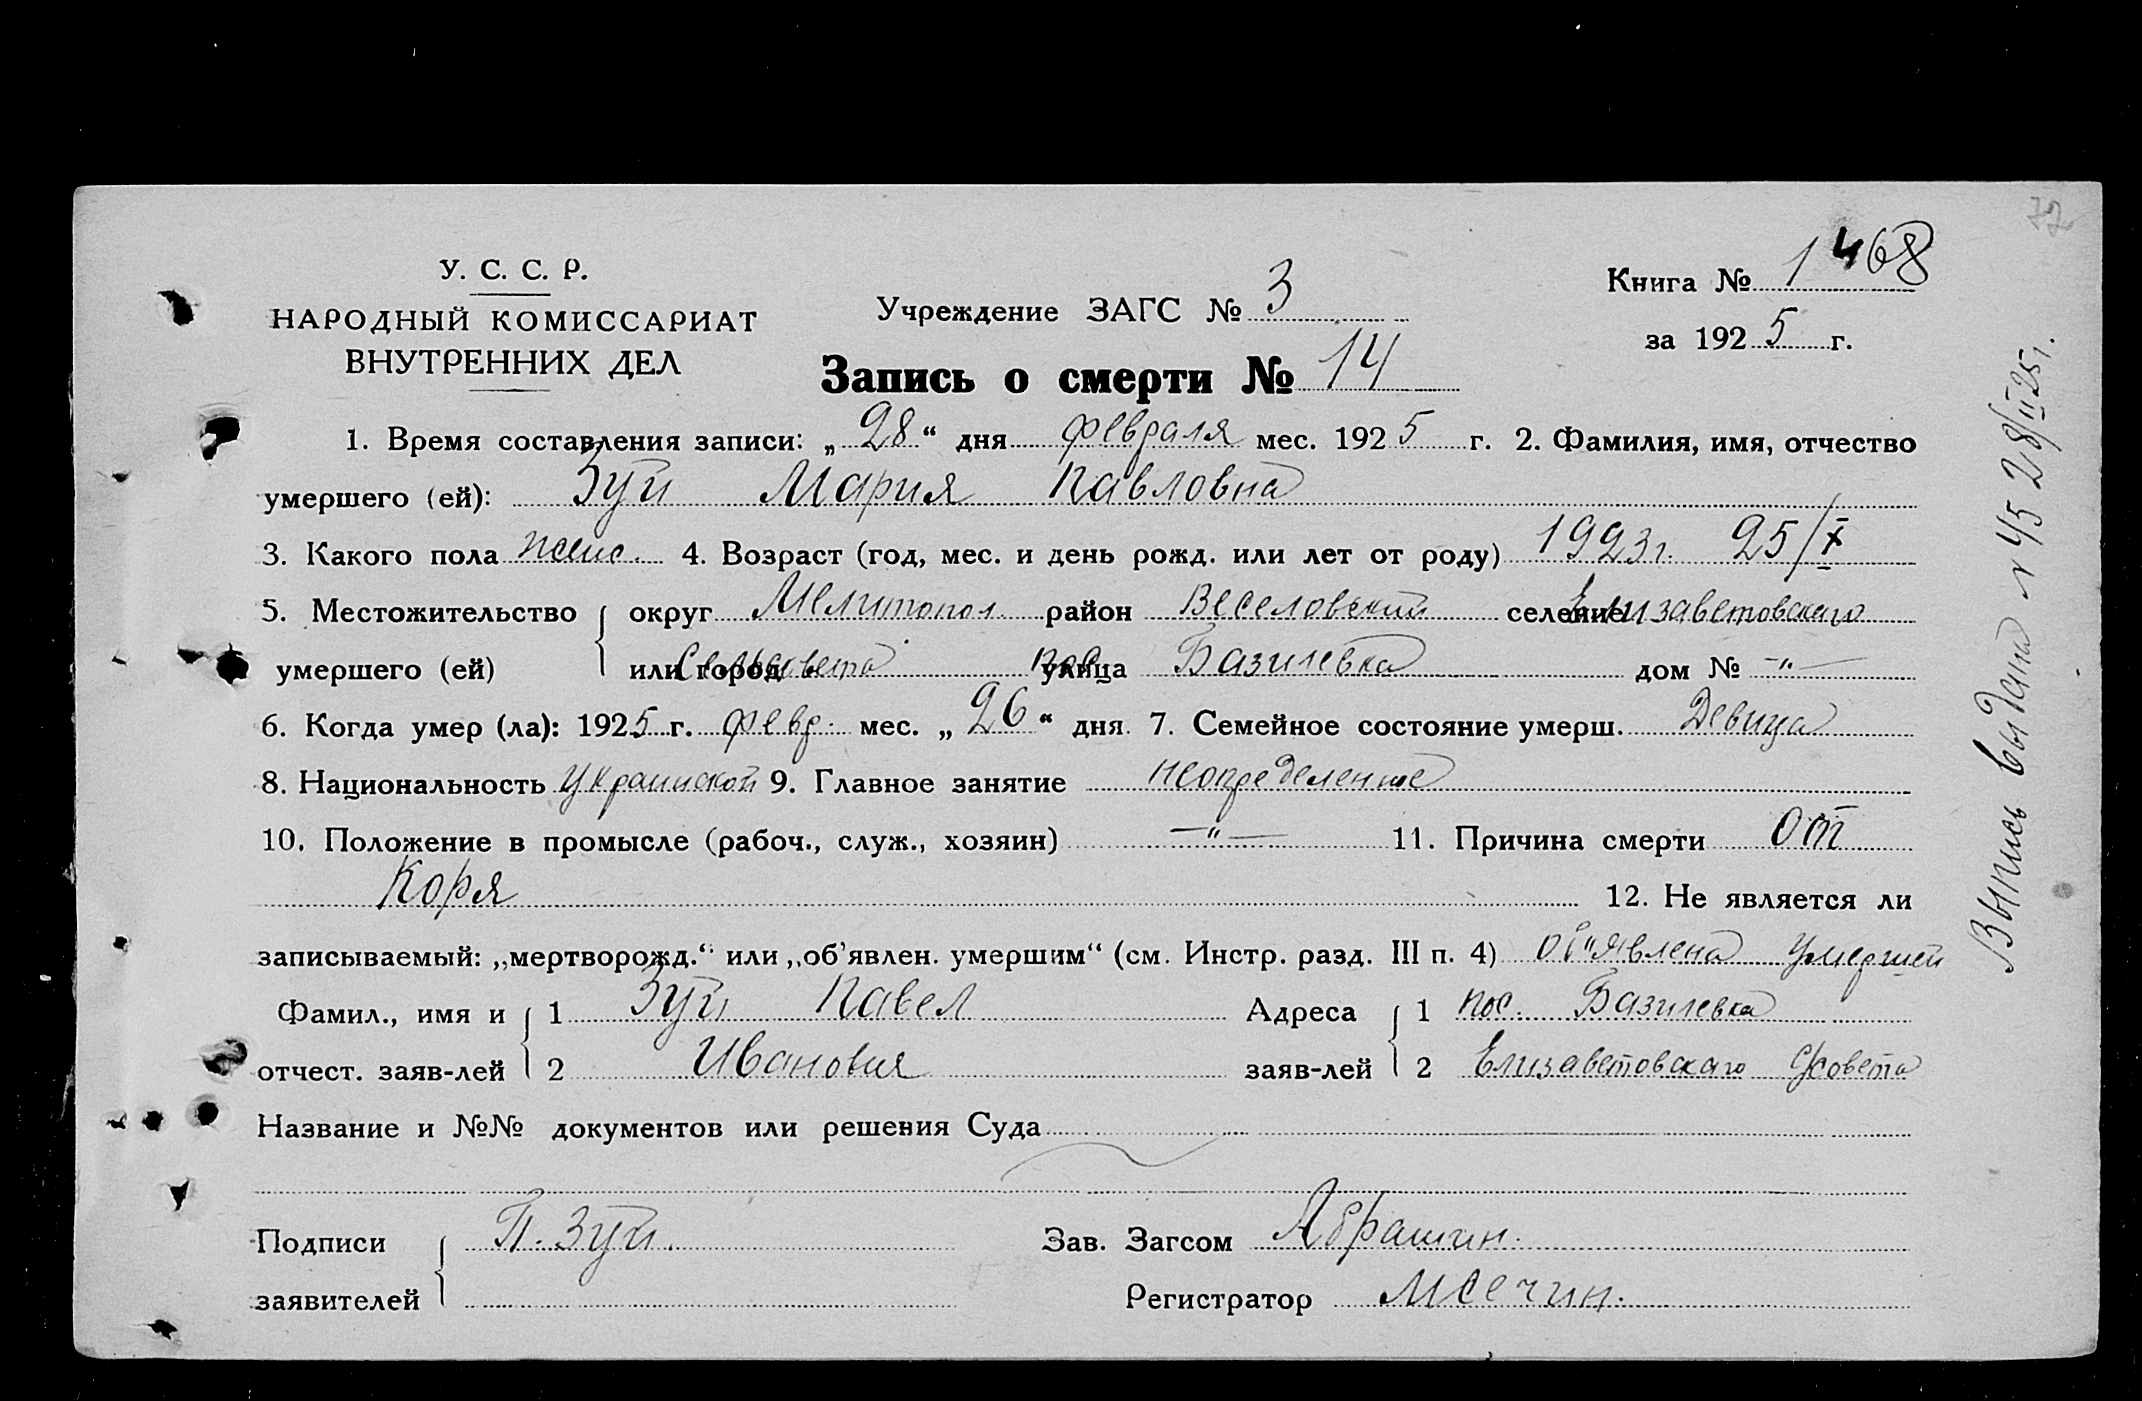 72
У. С. С. Р.
НАРОДНЫЙ КОМИССАРИАТ
ВНУТРЕННИХ ДЕЛ
Учреждение ЗАГС № 3
Книга № 1468
за 1925 г.
Запись о смерти № 14
1. Время составления записи: „28“ дня февраля мес. 1925 г. 2. Фамилия, имя, отчество
умершего (ей): Зуй Мария Павловна
3. Какого пола женс. 4. Возраст (год, мес. и день рожд. или лет от роду) 1923 г. 25/X
5. Местожительство округ Мелитопол. район Веселовский селение Елизаветовскаго
умершего (ей) или город Сельсовета улица пос. Базилевка дом № —"—
6. Когда умер (ла): 1925 г. февр. мес. „26“ дня. 7. Семейное состояние умерш. Девица
8. Национальность Украинской 9. Главное занятие неопределенное
10. Положение в промысле (рабоч., служ., хозяин) —"— 11. Причина смерти От
Коря 12. Не является ли
записываемый: „мертворожд.“ или „об'явлен. умершим“ (см. Инстр. разд. III п. 4) об"явлена умершей
Фамил., имя и 1 Зуй Павел Адреса 1 пос. Базилевка
отчест. заяв-лей 2 Иванович заяв-лей 2 Елизаветовскаго С/совета
Название и №№ документов или решения Суда
Подписи П. Зуй. Зав. Загсом Абрашин.
заявителей Регистратор
Выпись выдана № 45 28/II 25 г.